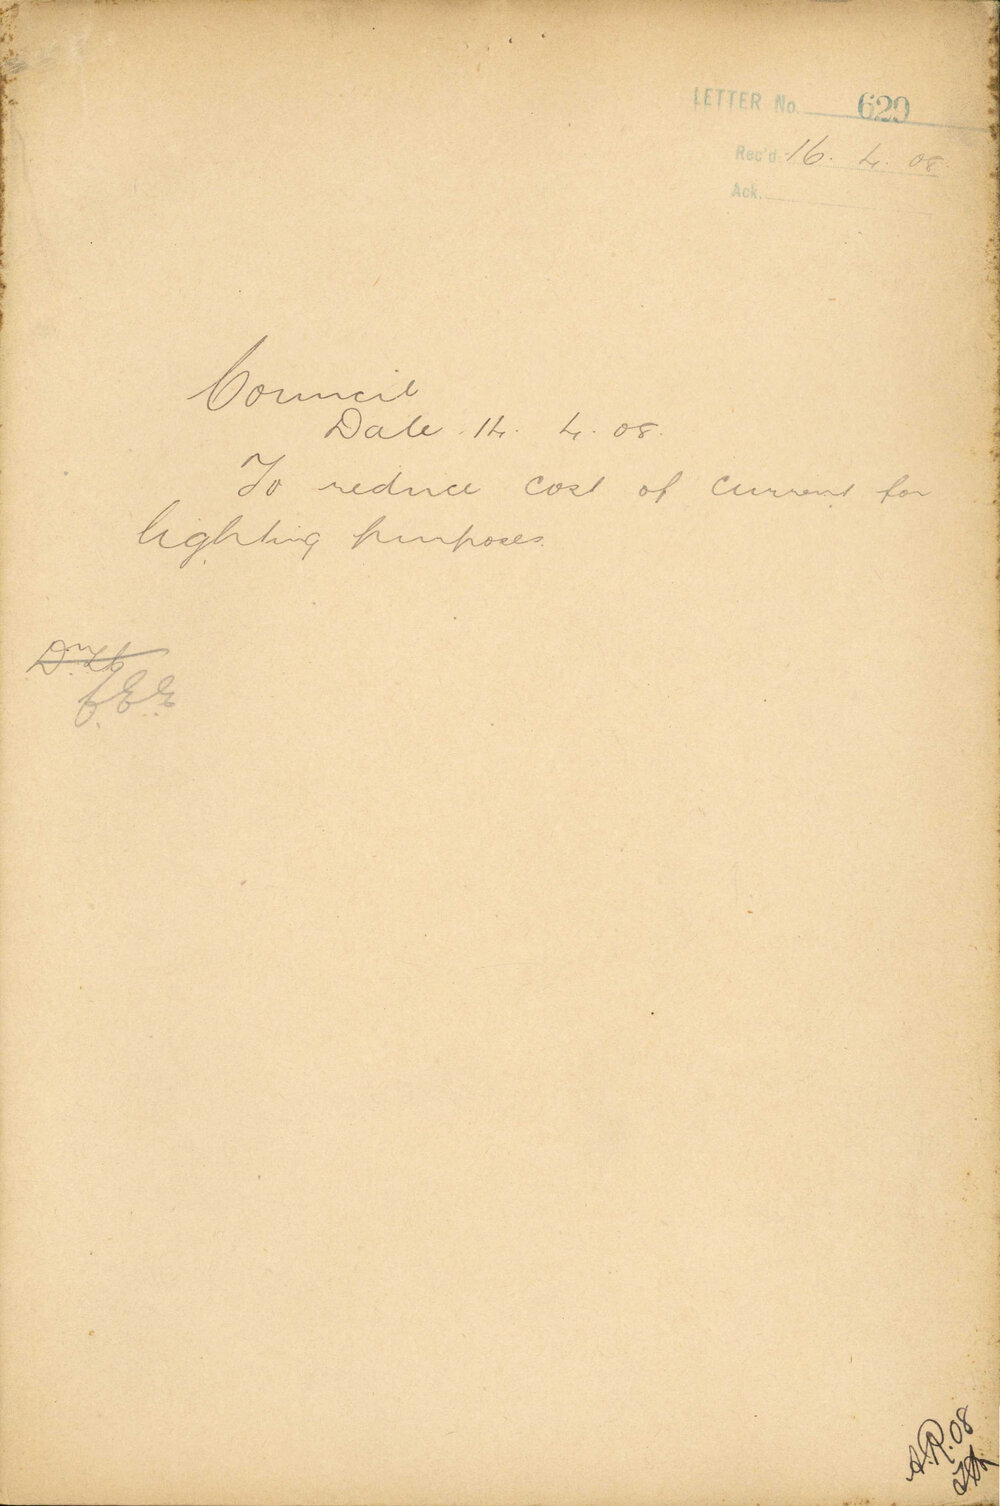 LETTER No. 629
Rec'd 16. 4. 08.
Ack.
Council
Date 14. 4. 08.
To reduce cost of current for
lighting purposes.
E.E.
A.R. 08